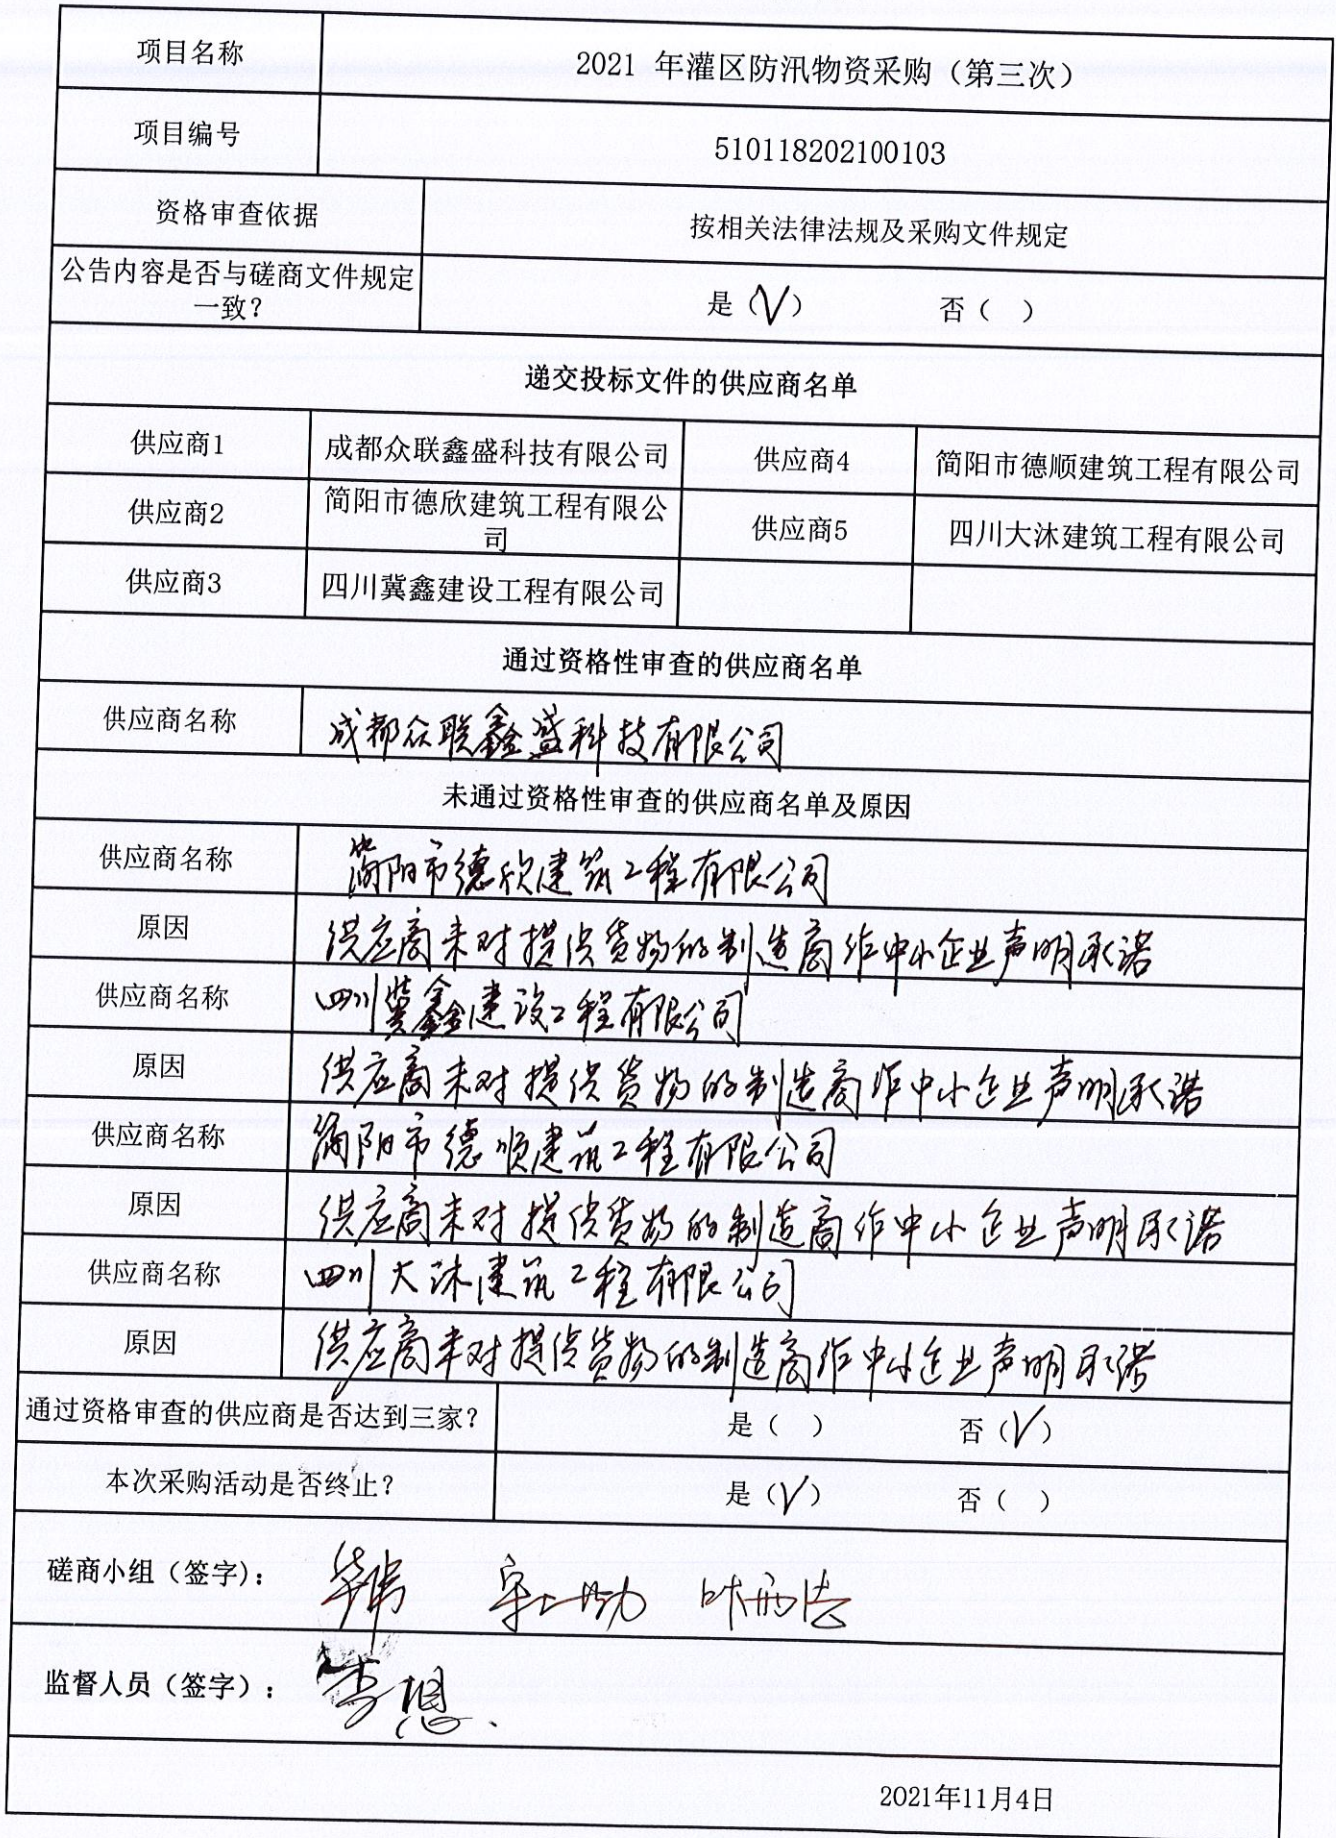 项目名称 2021 年灌区防汛物资采购（第三次）
项目编号 510118202100103
资格审查依据 按相关法律法规及采购文件规定
公告内容是否与磋商文件规定
一致？ 是（√） 否（ ）
递交投标文件的供应商名单
供应商1 成都众联鑫盛科技有限公司 供应商4 简阳市德顺建筑工程有限公司
供应商2 简阳市德欣建筑工程有限公
司 供应商5 四川大沐建筑工程有限公司
供应商3 四川冀鑫建设工程有限公司
通过资格性审查的供应商名单
供应商名称 成都众联鑫盛科技有限公司
未通过资格性审查的供应商名单及原因
供应商名称 简阳市德欣建筑工程有限公司
原因 供应商未对提供货物的制造商作中小企业声明承诺
供应商名称 四川冀鑫建设工程有限公司
原因 供应商未对提供货物的制造商作中小企业声明承诺
供应商名称 简阳市德顺建筑工程有限公司
原因 供应商未对提供货物的制造商作中小企业声明承诺
供应商名称 四川大沐建筑工程有限公司
原因 供应商未对提供货物的制造商作中小企业声明承诺
通过资格审查的供应商是否达到三家？ 是（ ） 否（√）
本次采购活动是否终止？ 是（√） 否（ ）
磋商小组（签字）：
监督人员（签字）：
2021年11月4日